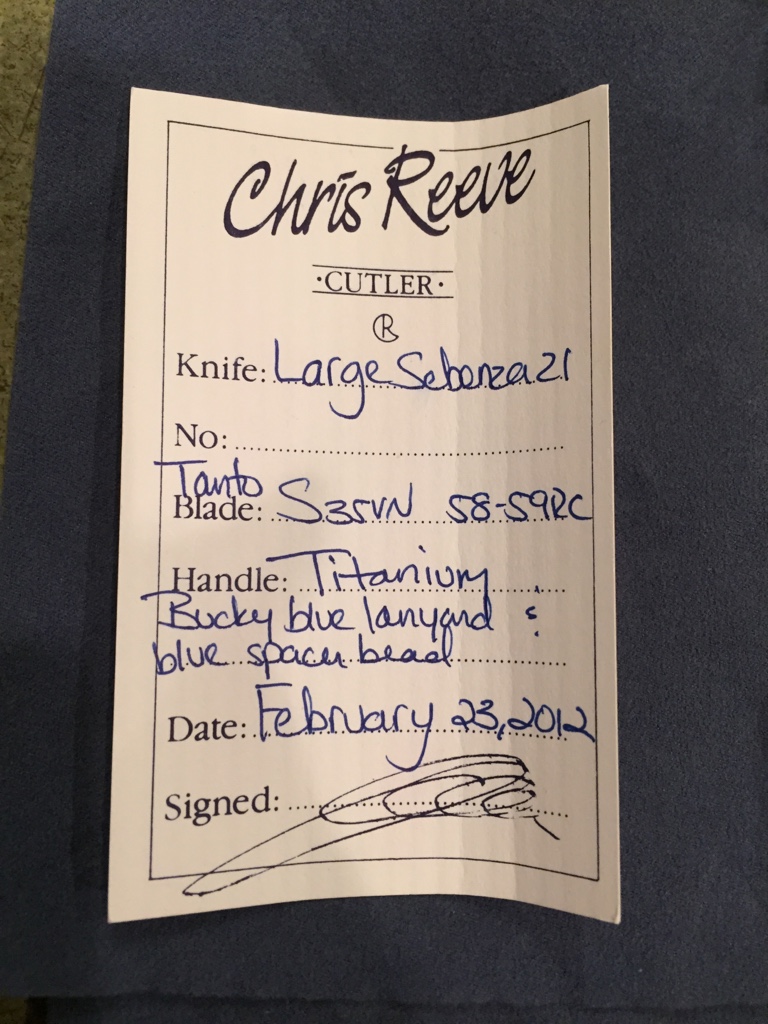 Chris Reeve
·CUTLER·
R
Knife: Large Sebenza 21
No:
Tanto
Blade: S35VN 58-59RC
Handle: Titanium
Bucky blue lanyard &
blue spacer bead
Date: February 23, 2012
Signed: